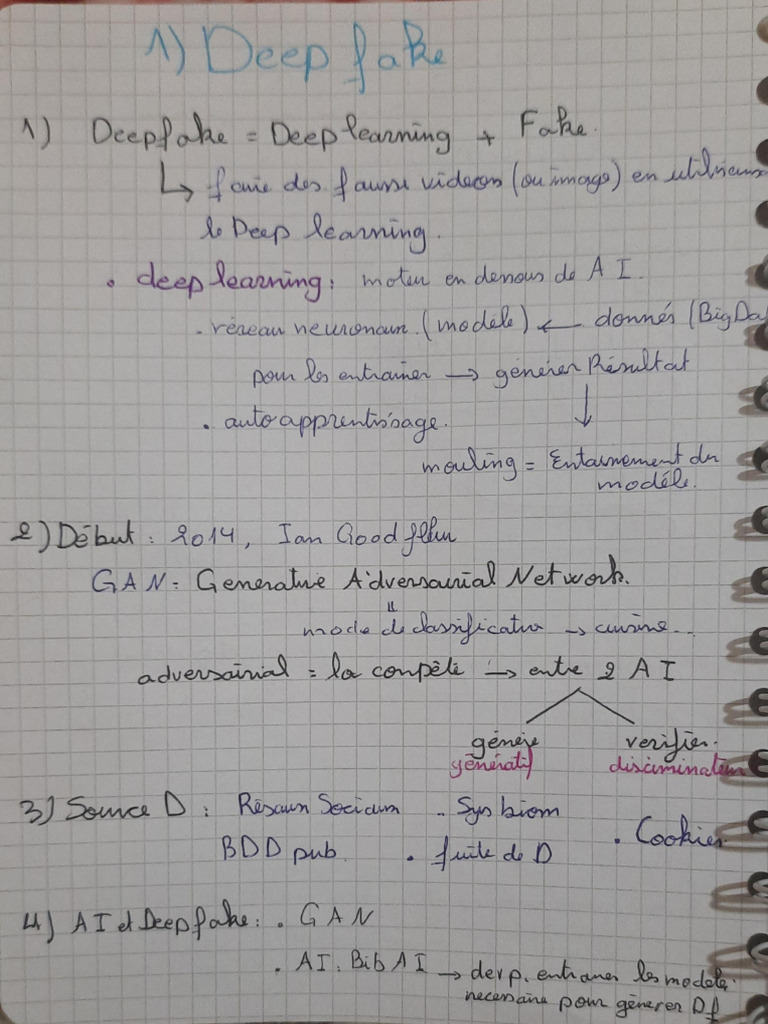 1) Deepfake
1) Deepfake = Deep learning + Fake.
↳ faire des fausse videos (ou image) en utilisant
le Deep learning.
. deep learning : moteur en dessous de AI.
. réseau neuronaux (modèle) ← donnés (BigDa
pour les entrainer → générer Résultat
. auto apprentissage. ↓
= Entainement du
modéle.
2) Début : 2014, Ian Goodfllow
GAN = Generative Adversairial Network.
"
mode de classification →
adversairial = la compète → entre 2 AI
génère verifier.
génératif discriminateur
3) Source D : Réseaux Sociaux . Sys biom . Cookies
BDD pub. . fuite de D
4) AI et Deepfake : . GAN
. AI : Bib AI → devp. entraner les modele
necessaire pour génerer Df